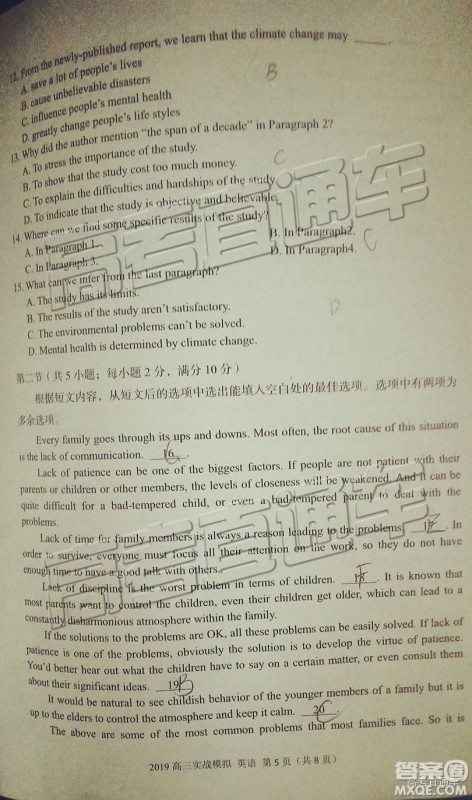 12. From the newly-published report, we learn that the climate change may ____
A. save a lot of people's lives
B. cause unbelievable disasters
B
C. influence people's mental health
D. greatly change people's life styles
13. Why did the author mention "the span of a decade" in Paragraph 2?
A. To stress the importance of the study.
B. To show that the study cost too much money.
C
C. To explain the difficulties and hardships of the study.
D. To indicate that the study is objective and believable.
14. Where can we find some specific results of the study?
A. In Paragraph 1. B. In Paragraph2.
C
C. In Paragraph 3. D. In Paragraph4.
15. What can we infer from the last paragraph?
A. The study has its limits.
B. The results of the study aren't satisfactory.
D
C. The environmental problems can't be solved.
D. Mental health is determined by climate change.
第二节(共5小题;每小题2分,满分10分)
根据短文内容,从短文后的选项中选出能填入空白处的最佳选项。选项中有两项为
多余选项。
Every family goes through its ups and downs. Most often, the root cause of this situation
is the lack of communication. 16
Lack of patience can be one of the biggest factors. If people are not patient with their
parents or children or other members, the levels of closeness will be weakened. And it can be
quite difficult for a bad-tempered child, or even a bad-tempered parent to deal with the
problems.
Lack of time for family members is always a reason leading to the problems. 17 . In
order to survive, everyone must focus all their attention on the work, so they do not have
enough time to have a good talk with others.
Lack of discipline is the worst problem in terms of children. 18 . It is known that
most parents want to control the children, even their children get older, which can lead to a
constantly disharmonious atmosphere within the family.
If the solutions to the problems are OK, all these problems can be easily solved. If lack of
patience is one of the problems, obviously the solution is to develop the virtue of patience.
You'd better hear out what the children have to say on a certain matter, or even consult them
about their significant ideas. 19 B
It would be natural to see childish behavior of the younger members of a family but it is
up to the elders to control the atmosphere and keep it calm. 20
The above are some of the most common problems that most families face. So it is
2019 高三实战模拟 英语 第5页(共8页)
高考直通车
高考直通车
答案圈
MXQE.COM